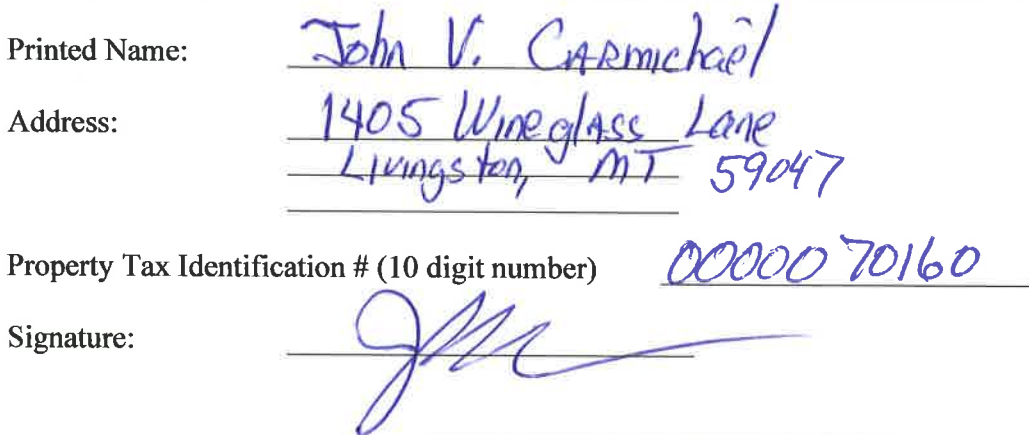 Printed Name: John V. Carmichael
Address: 1405 Wineglass Lane
Livingston, MT 59047
Property Tax Identification # (10 digit number) 0000070160
Signature: